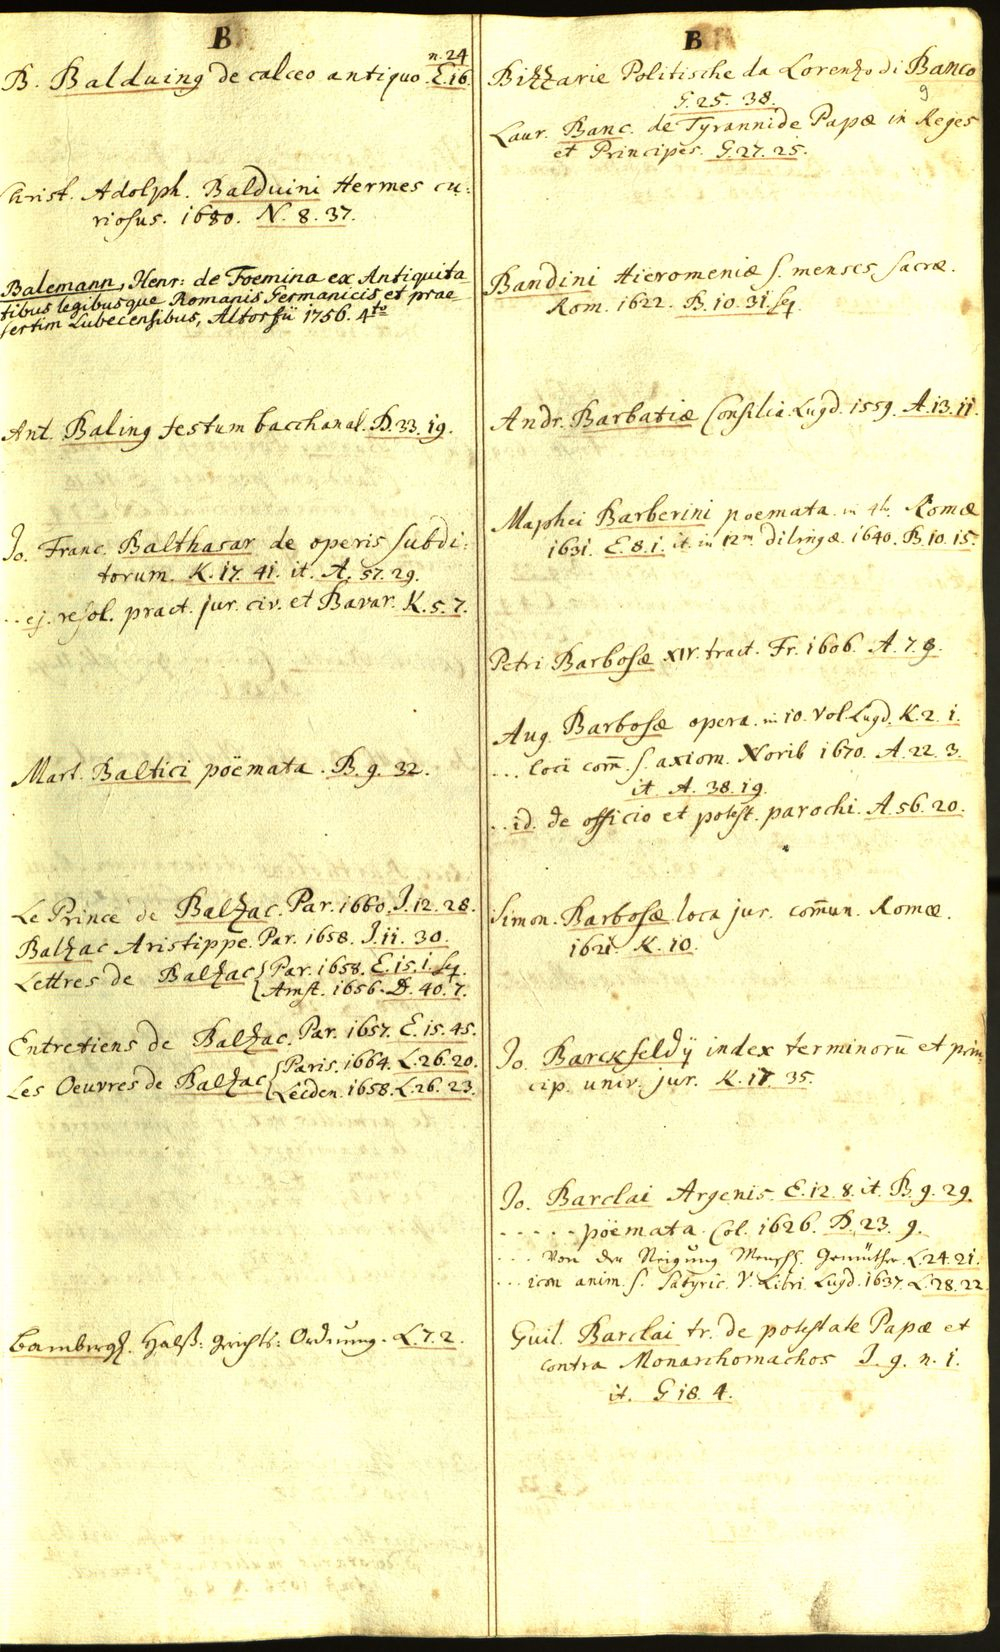 B
n. 24
B. Balduing de calceo antiquo E. 16.
Christ. Adolph. Balduini Hermes cu:
riosus. 1680. N. 8. 37.
Balemann, Henr: de Foemina ex Antiquita
tibus legibusque Romanis Germanicis et prae
sertim Lubecensibus, Altorfii 1756. 4to
Ant. Baling festum bacchanal. D. 33. 19.
Jo. Franc. Balthasar de operis subdi:
torum. K. 17. 41. it. A. 57. 29.
.. ej. resol. pract. jur. civ. et Bavar. K. 5. 7.
Mart. Baltici poëmata. B. 9. 32.
Le Prince de Balzac. Par. 1660. J. 12. 28.
Balzac Aristippe. Par. 1658. J. 11. 30.
Lettres de Balzac { Par. 1658. E. 15. 1. sq.
{ Amst. 1656. D. 40. 7.
Entretiens de Balzac. Par. 1657. E. 15. 45.
Les Oeuvres de Balzac { Paris. 1664. L. 26. 20.
{ Leiden. 1658. L. 26. 23.
Bamberg. Halß: Grichts: Ordnung. L. 7. 2.
B
Bizzarie Politische da Lorenzo di Banco
9
G. 25. 38.
Laur. Banc. de Tyrannide Papæ in Reges
et Principes. G. 27. 25.
Bandini Hieromeniæ s. menses sacræ.
Rom. 1622. B. 10. 31. sq.
Andr. Barbatiæ Consilia Lugd. 1559. A. 13. 11.
Maphei Barberini poemata in 4to. Romæ
1631. E. 8. 1. it. in 12m dilingæ. 1640. B. 10. 15.
Petri Barbosæ XIV. tract. Fr. 1606. A. 7. 9.
Aug. Barbosæ opera. in 10. Vol. Lugd. K. 2. 1.
... loci com̄. s. axiom. Norib 1670. A. 22. 3.
it. A. 38. 19.
.. id. de officio et potest. parochi. A. 56. 20.
Simon. Barbosæ loca jur. com̄un. Romæ.
1621. K. 10.
Jo. Barckfeldÿ index terminorū et prin
cip. univ. jur. K. 17. 35.
Jo. Barclai Argenis. E. 12. 8. it. B. 9. 29.
. . . . . poëmata. Col. 1626. D. 23. 9.
... Von der Neigung Menschl. Gemüther. L. 24. 21.
... icon anim. s. Satyric. V. Libri. Lugd. 1637. L. 28. 22.
Guil. Barclai tr. de potestate Papæ et
contra Monarchomachos J. 9. n. 1.
it. G 18. 4.